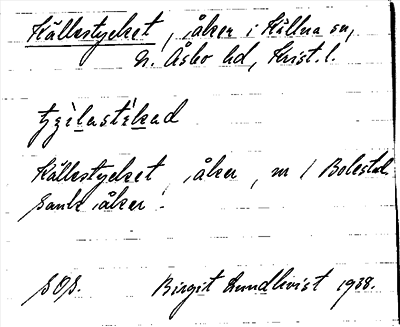 Källestycket, åker i Källna sn,
N. Åsbo hd, Krist. l.
Källestycket, åker, nr 1 Bolestad.
Sank åker.
SOS. Birgit Lundkvist 1938.